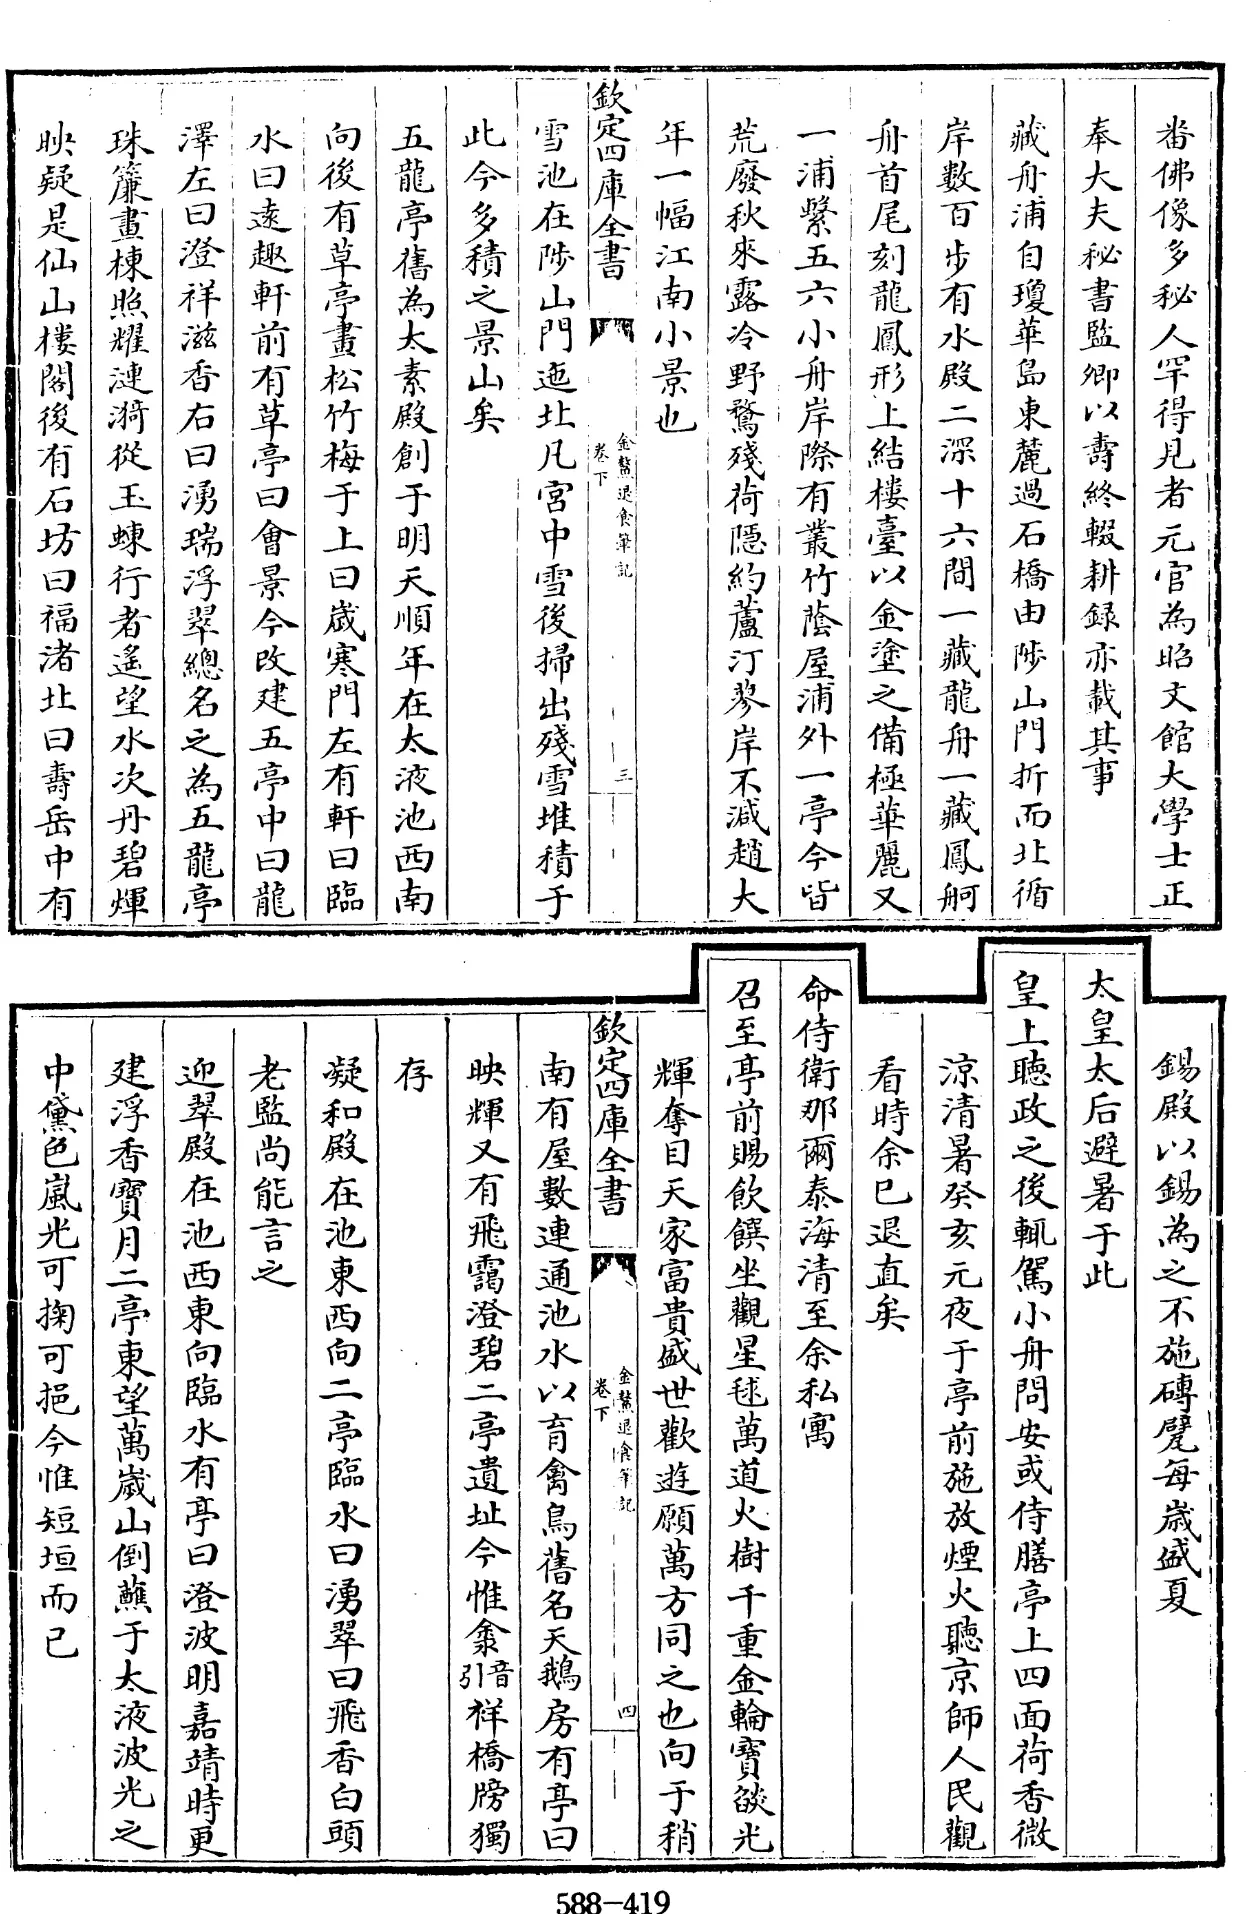 番佛像多秘人罕得見者元官為昭文館大學士正
奉大夫秘書監卿以壽終輟耕録亦載其事
藏舟浦自瓊華島東麓過石橋由陟山門折而北循
岸數百步有水殿二深十六間一藏龍舟一藏鳳舸
舟首尾刻龍鳳形上結樓臺以金塗之備極華麗又
一浦繫五六小舟岸際有叢竹蔭屋浦外一亭今皆
荒廢秋來露冷野鶩殘荷隱約蘆汀蓼岸不減趙大
年一幅江南小景也
欽定四庫全書
金鰲退食筆記
卷下
三
雪池在陟山門迤北凡宮中雪後掃出殘雪堆積于
此今多積之景山矣
五龍亭舊為太素殿創于明天順年在太液池西南
向後有草亭畫松竹梅于上曰歲寒門左有軒曰臨
水曰遠趣軒前有草亭曰會景今改建五亭中曰龍
澤左曰澄祥滋香右曰湧瑞浮翠總名之為五龍亭
珠簾畫棟照耀漣漪從玉蝀行者遙望水次丹碧煇
映疑是仙山樓閣後有石坊曰福渚北曰壽岳中有
錫殿以錫為之不施磚甓每歲盛夏
太皇太后避暑于此
皇上聽政之後輒駕小舟問安或侍膳亭上四面荷香微
涼清暑癸亥元夜于亭前施放煙火聽京師人民觀
看時余已退直矣
命侍衛那爾泰海清至余私寓
召至亭前賜飲饌坐觀星毬萬道火樹千重金輪寶燄光
輝奪目天家富貴盛世歡遊願萬方同之也向于稍
欽定四庫全書
金鰲退食筆記
卷下
四
南有屋數連通池水以育禽鳥舊名天鵝房有亭曰
映輝又有飛靄澄碧二亭遺址今惟夆音引祥橋牓獨
存
凝和殿在池東西向二亭臨水曰湧翠曰飛香白頭
老監尚能言之
迎翠殿在池西東向臨水有亭曰澄波明嘉靖時更
建浮香寶月二亭東望萬歲山倒蘸于太液波光之
中黛色嵐光可掬可挹今惟短垣而已
588-419